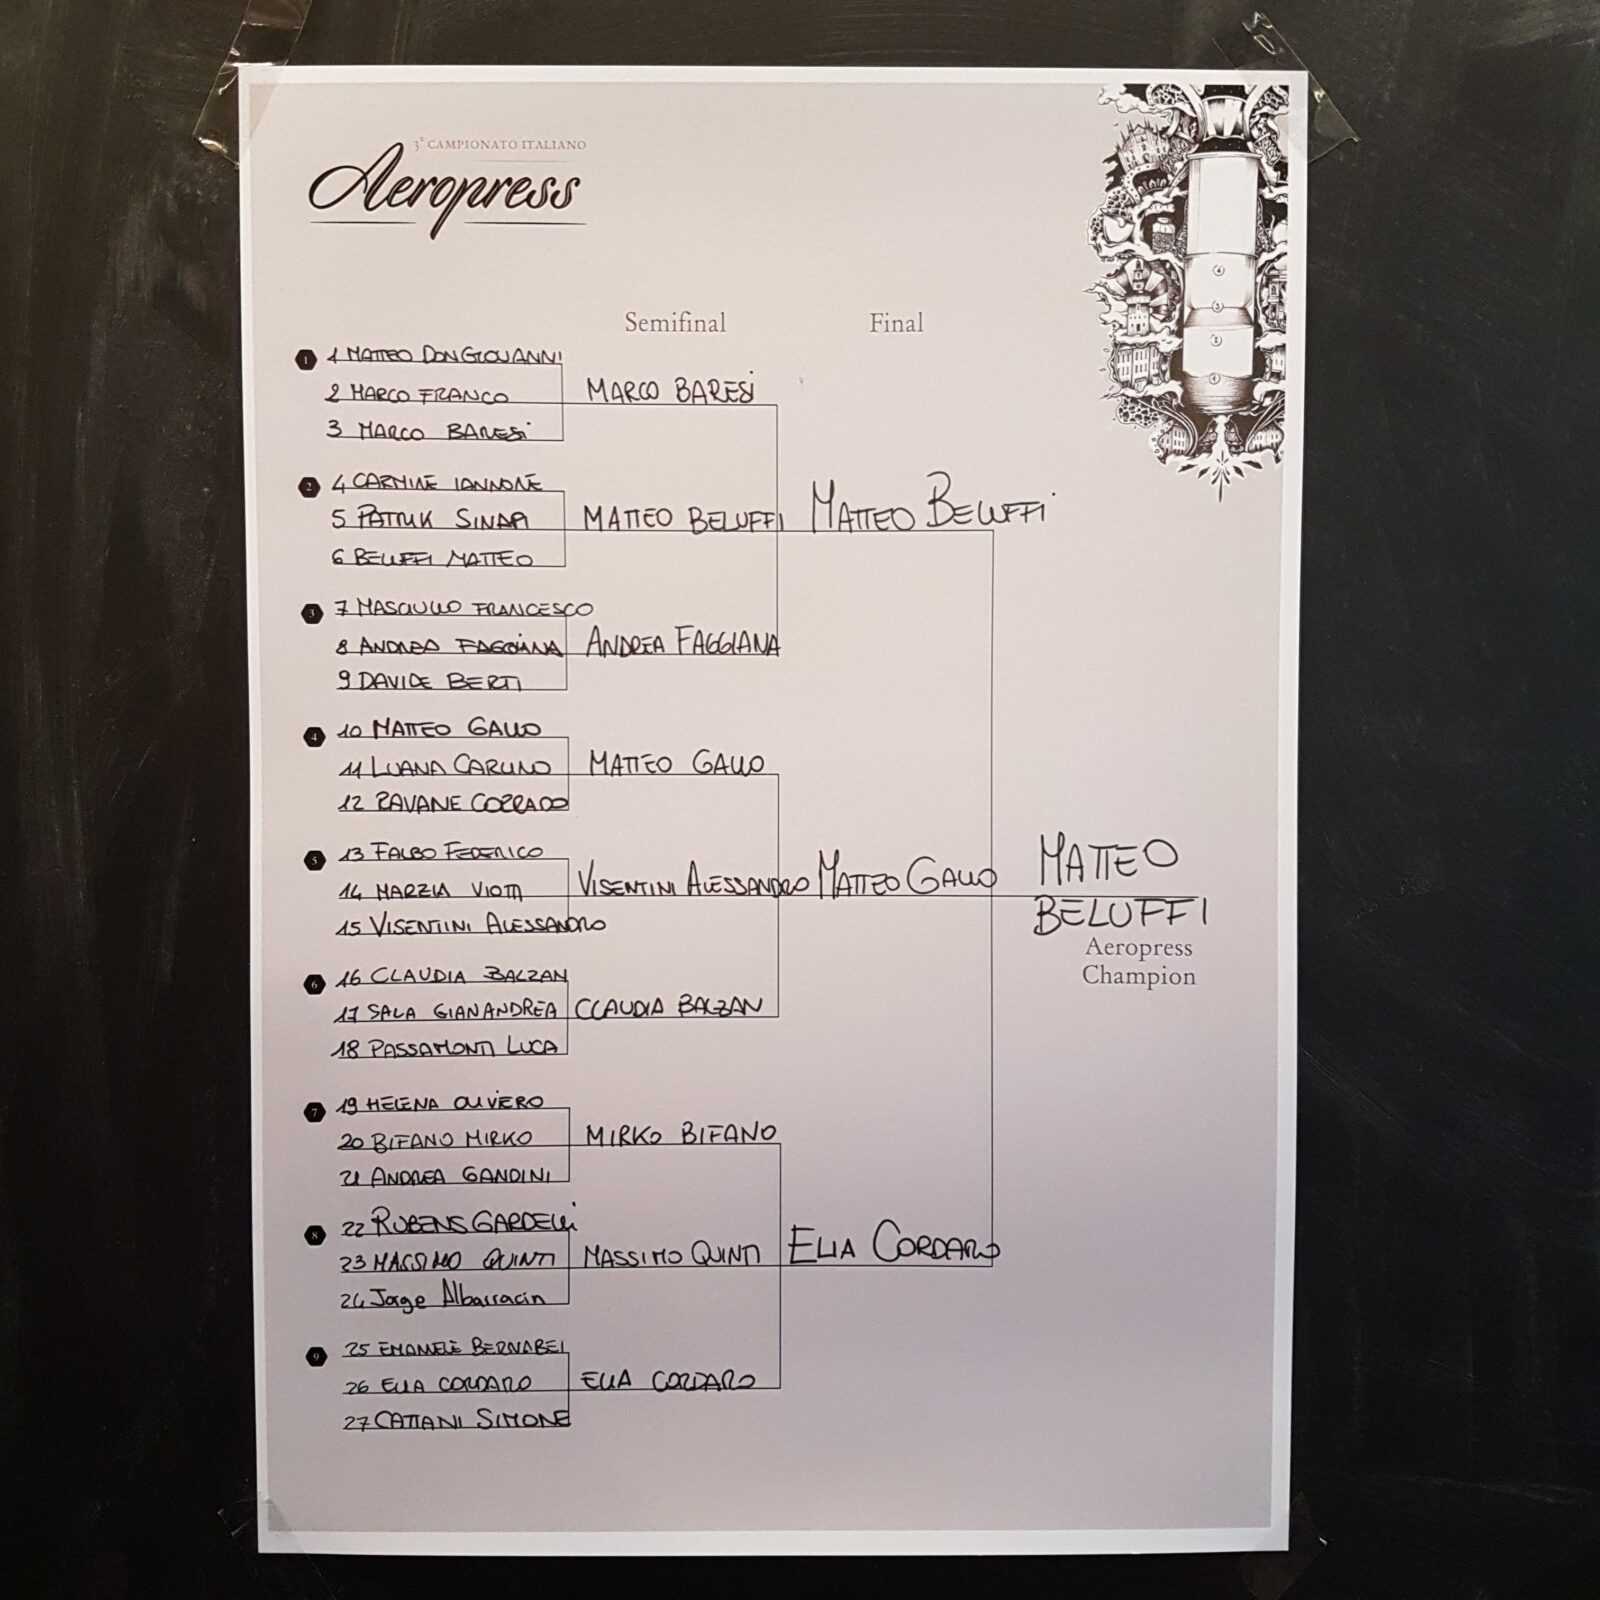 3° CAMPIONATO ITALIANO
Aeropress
Semifinal
Final
1
1 MATTEO DONGIOVANNI
2 MARCO FRANCO
MARCO BARESI
3 MARCO BARESI
2
4 CARMINE IANNONE
5 PATRIK SINAPI
MATTEO BELUFFI
MATTEO BELUFFI
6 BELUFFI MATTEO
3
7 MASCIULLO FRANCESCO
8 ANDREA FAGGIANA
ANDREA FAGGIANA
9 DAVIDE BERTI
4
10 MATTEO GALLO
11 LUANA CARLINO
MATTEO GALLO
12 RAVANE CORRADO
5
13 FALBO FEDERICO
14 MARZIA VIOTTI
VISENTINI ALESSANDRO
MATTEO GALLO
MATTEO
BELUFFI
15 VISENTINI ALESSANDRO
Aeropress
Champion
6
16 CLAUDIA BALZAN
17 SALA GIANANDREA
CLAUDIA BALZAN
18 PASSAMONTI LUCA
7
19 HELENA OLIVIERO
20 BIFANO MIRKO
MIRKO BIFANO
21 ANDREA GANDINI
8
22 RUBENS GARDELLI
23 MASSIMO QUINTI
MASSIMO QUINTI
ELIA CORDARO
24 Jorge Albarracin
9
25 EMANUELE BERNABEI
26 ELIA CORDARO
ELIA CORDARO
27 CATTANI SIMONE